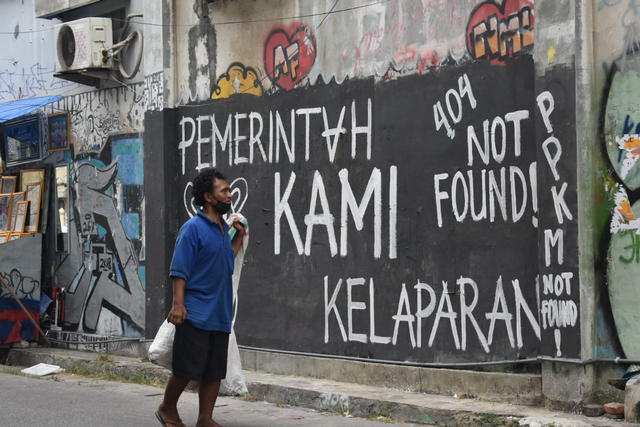 PEMERINTAH
KAMI
KELAPARAN
404
NOT
FOUND!
PPKM
NOT
FOUND
!